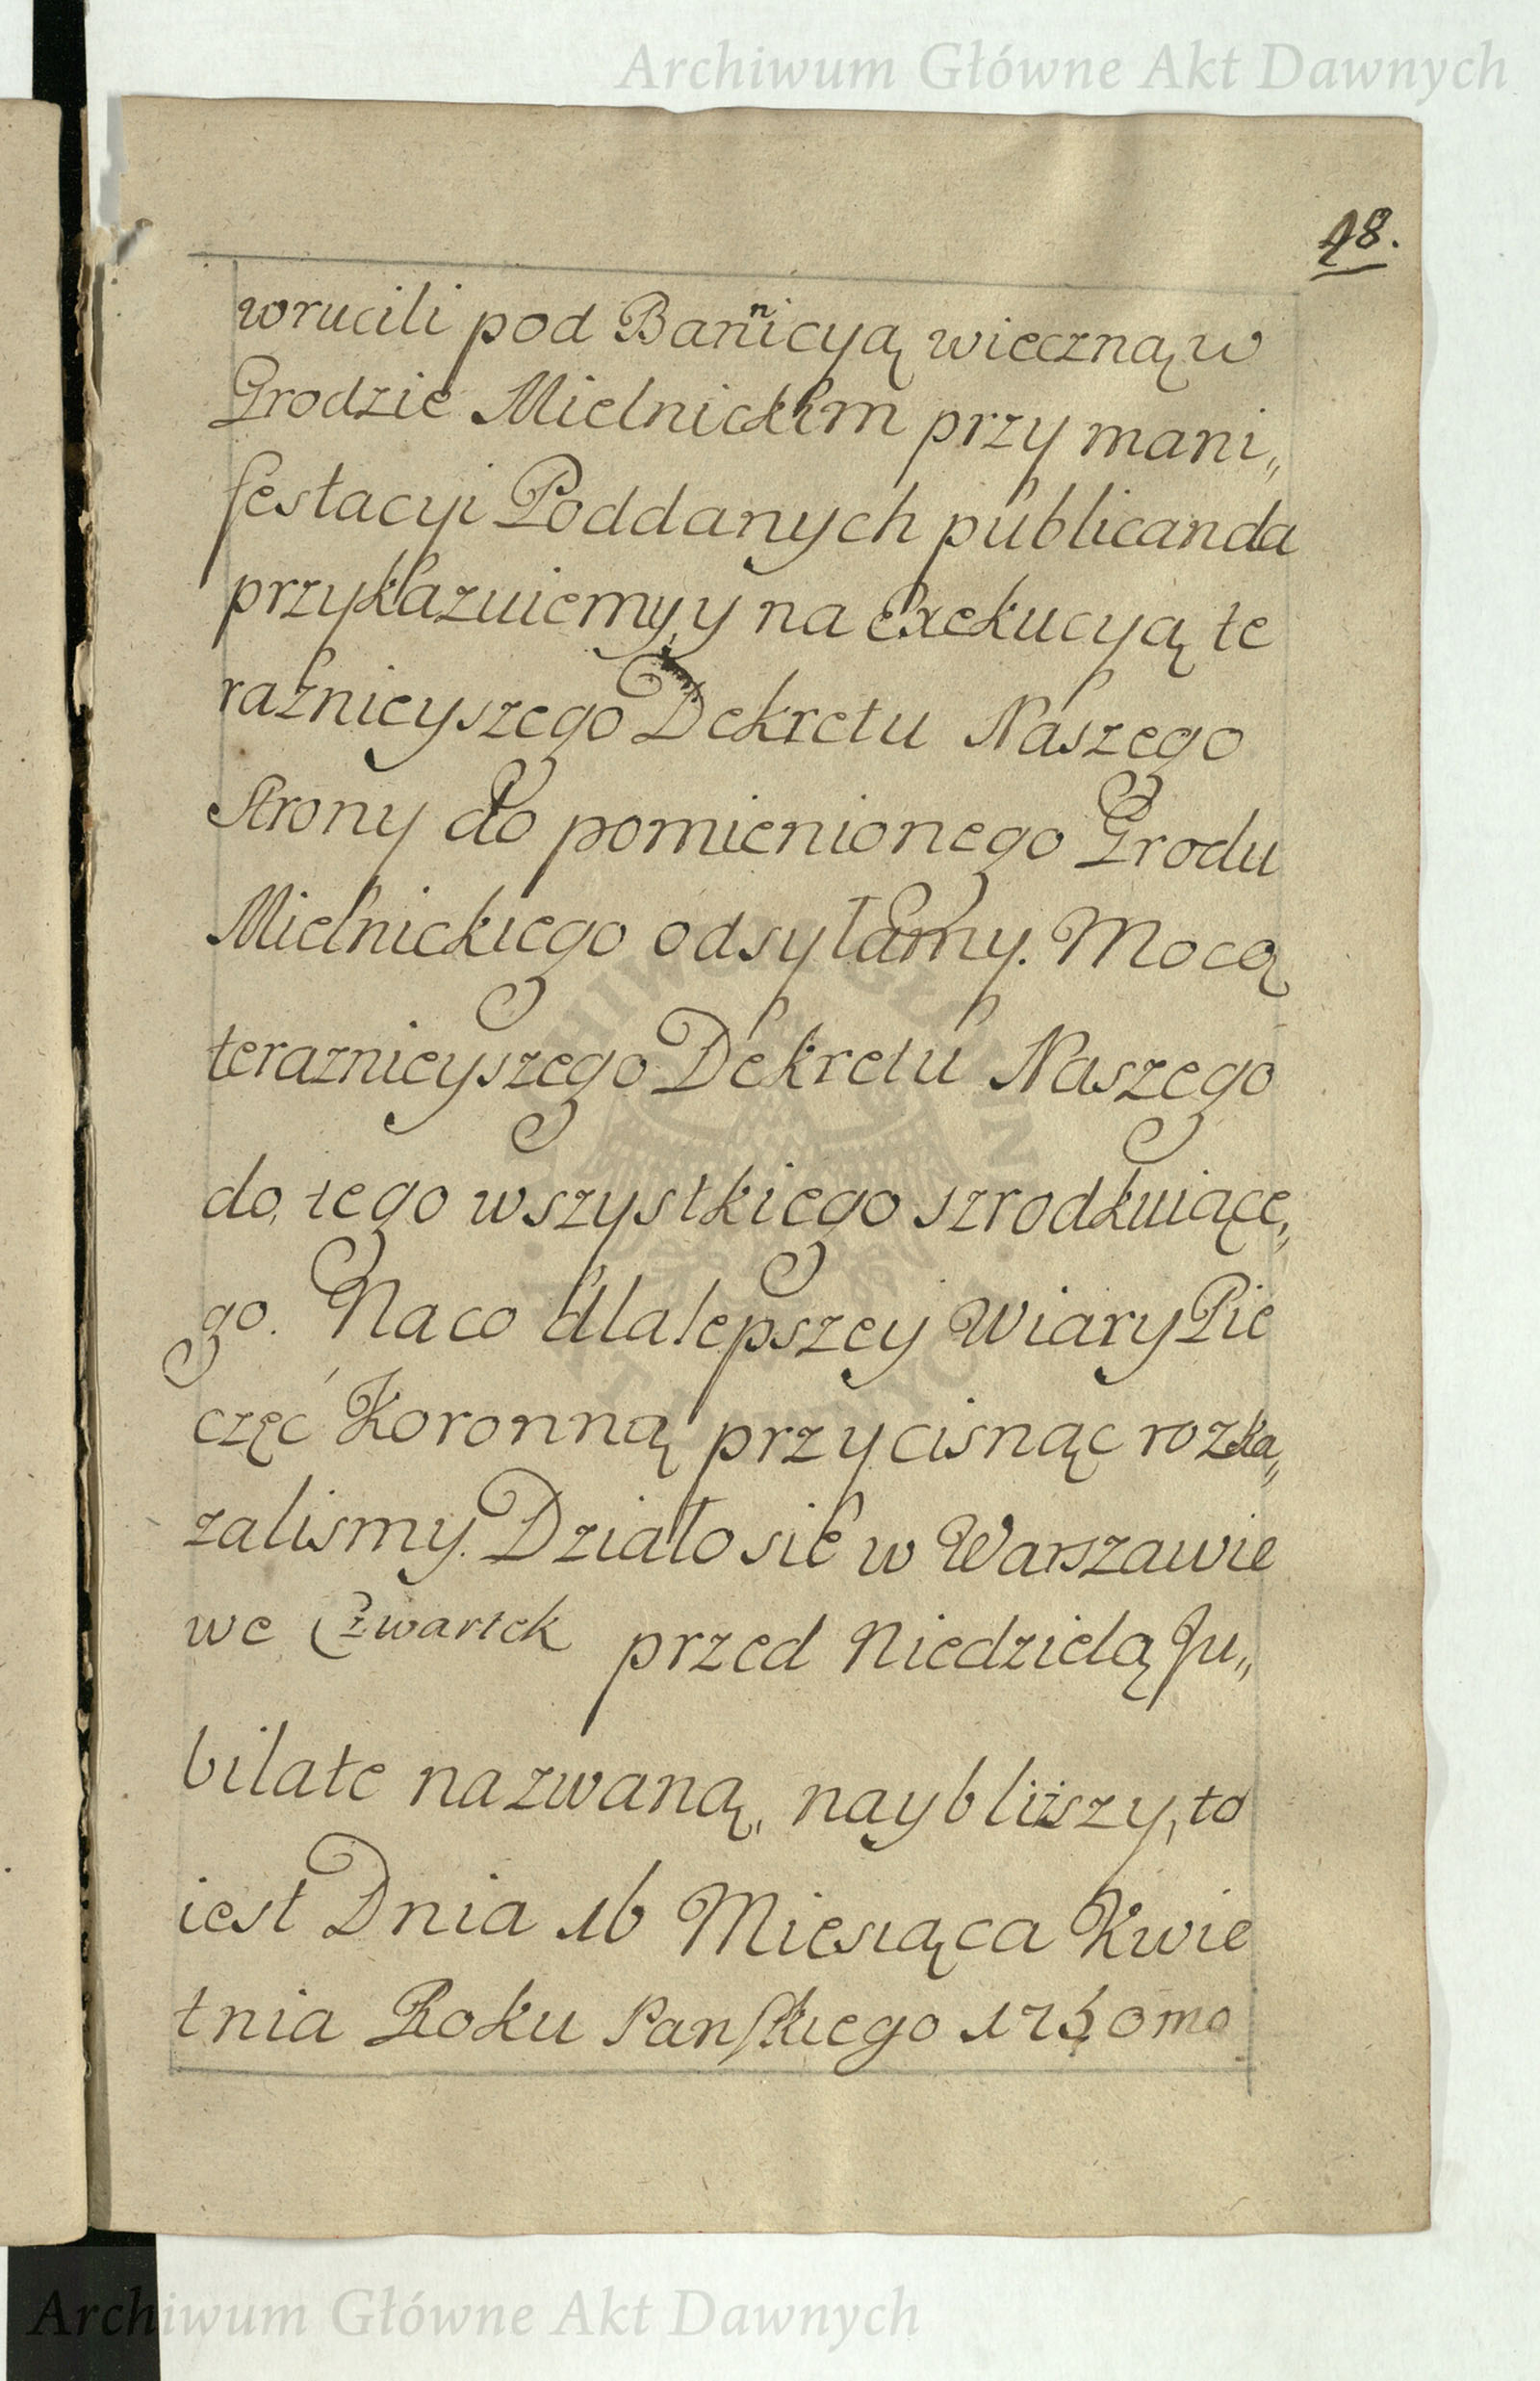 Archiwum Główne Akt Dawnych
48.
wrucili pod Bannicyą wieczną w
Grodzie Mielnickim przy mani„
festacyi Poddanych publicanda
przykazuiemy, y na exekucyą te
raznieyszego Dekretu Naszego
Strony do pomienionego Grodu
Mielnickiego odsyłamy. Mocą
teraznieyszego Dekretu Naszego
do tego wszystkiego szrodkuiące„
go. Na co dla lepszey Wiary Pie
częć Koronną przycisnąc rozka„
zalismy. Działo sie w Warszawie
we Czwartek przed Niedzielą Ju„
bilate nazwaną, naybliższy, to
iest Dnia 16 Miesiąca Kwie
tnia Roku Panskiego 1750mo
Archiwum Główne Akt Dawnych